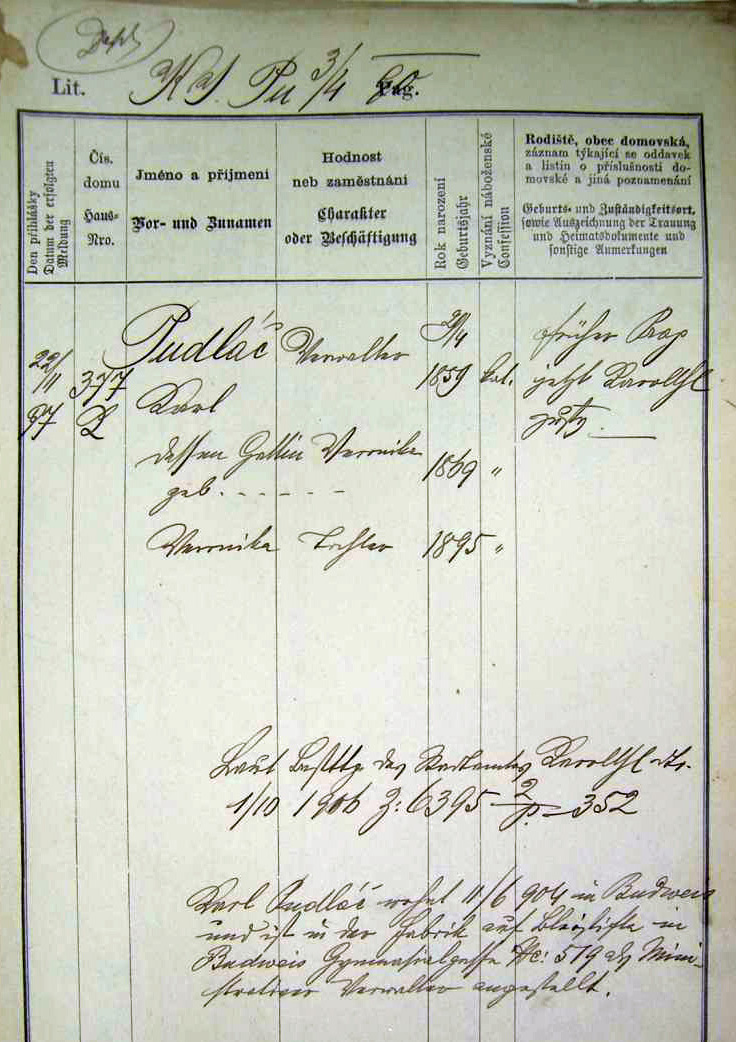 Lit. Pag.
Kal. Pu 3/4 60
Den přihlášky
Datum der erfolgten
Meldung
Čís.
domu
Haus-
Nro.
Jméno a přijmení
Vor- und Zunamen
Hodnost
neb zaměstnání
Charakter
oder Beschäftigung
Rok narození
Geburtsjahr
Vyznání náboženské
Confession
Rodiště, obec domovská,
záznam týkající se oddavek
a listin o příslušnosti do-
movské a jiná poznamenání
Geburts- und Zuständigkeitsort,
sowie Auszeichnung der Trauung
und Heimatsdokumente und
sonstige Anmerkungen
Pudláč Verwalter früher
22/11 97 377 Karl 1859 kat. jetzt Karolthl
zust.
dessen Gattin Veronika 1869 "
geb. - - - - -
Veronika Tochter 1895 "
Laut des Karolthl
1/10 1906 Z: 6395 352
Karl Pudláč wohnt 11/6 904 in Budweis
und ist in der Fabrik auf Bleistifte in
Budweis Gymnasialgasse Nc: 519 als Mini-
strativer Verwalter angestellt.